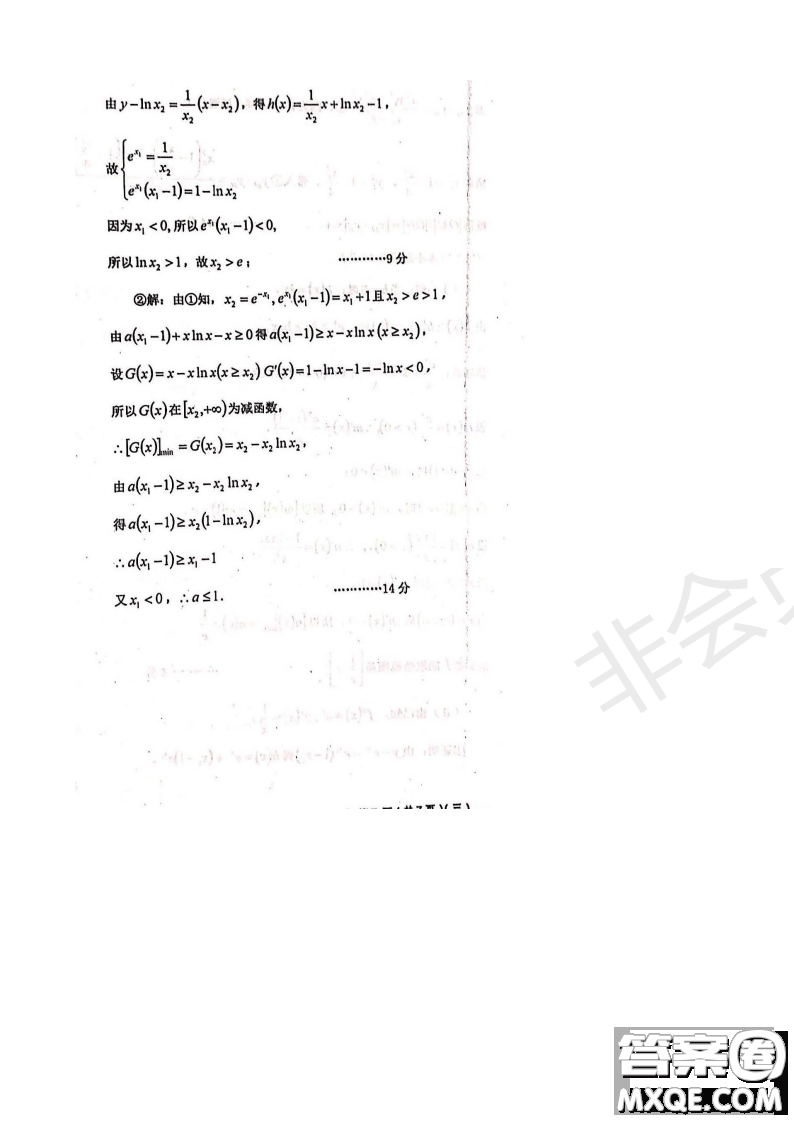 由 y－ln x₂ = 1/x₂ (x－x₂)，得 h(x)= 1/x₂ x+ln x₂－1，
故 { e^{x₁} = 1/x₂
e^{x₁}(x₁－1)=1－ln x₂
因为 x₁＜0, 所以 e^{x₁}(x₁－1)＜0,
所以 ln x₂＞1，故 x₂＞e； …………9 分
②解：由①知， x₂ = e^{-x₁}, e^{x₁}(x₁－1)= x₁+1 且 x₂＞e＞1，
由 a(x₁－1)+x ln x－x≥0 得 a(x₁－1)≥x－x ln x (x≥x₂)，
设 G(x)= x－x ln x(x≥x₂) G′(x)=1－ln x－1=－ln x＜0，
所以 G(x) 在 [x₂,+∞) 为减函数，
∴[G(x)]min = G(x₂)= x₂－x₂ ln x₂，
由 a(x₁－1)≥x₂－x₂ ln x₂，
得 a(x₁－1)≥x₂(1－ln x₂)，
∴a(x₁－1)≥x₁－1
又 x₁＜0，∴a≤1. …………14 分
非会
答案圈
MXQE.COM